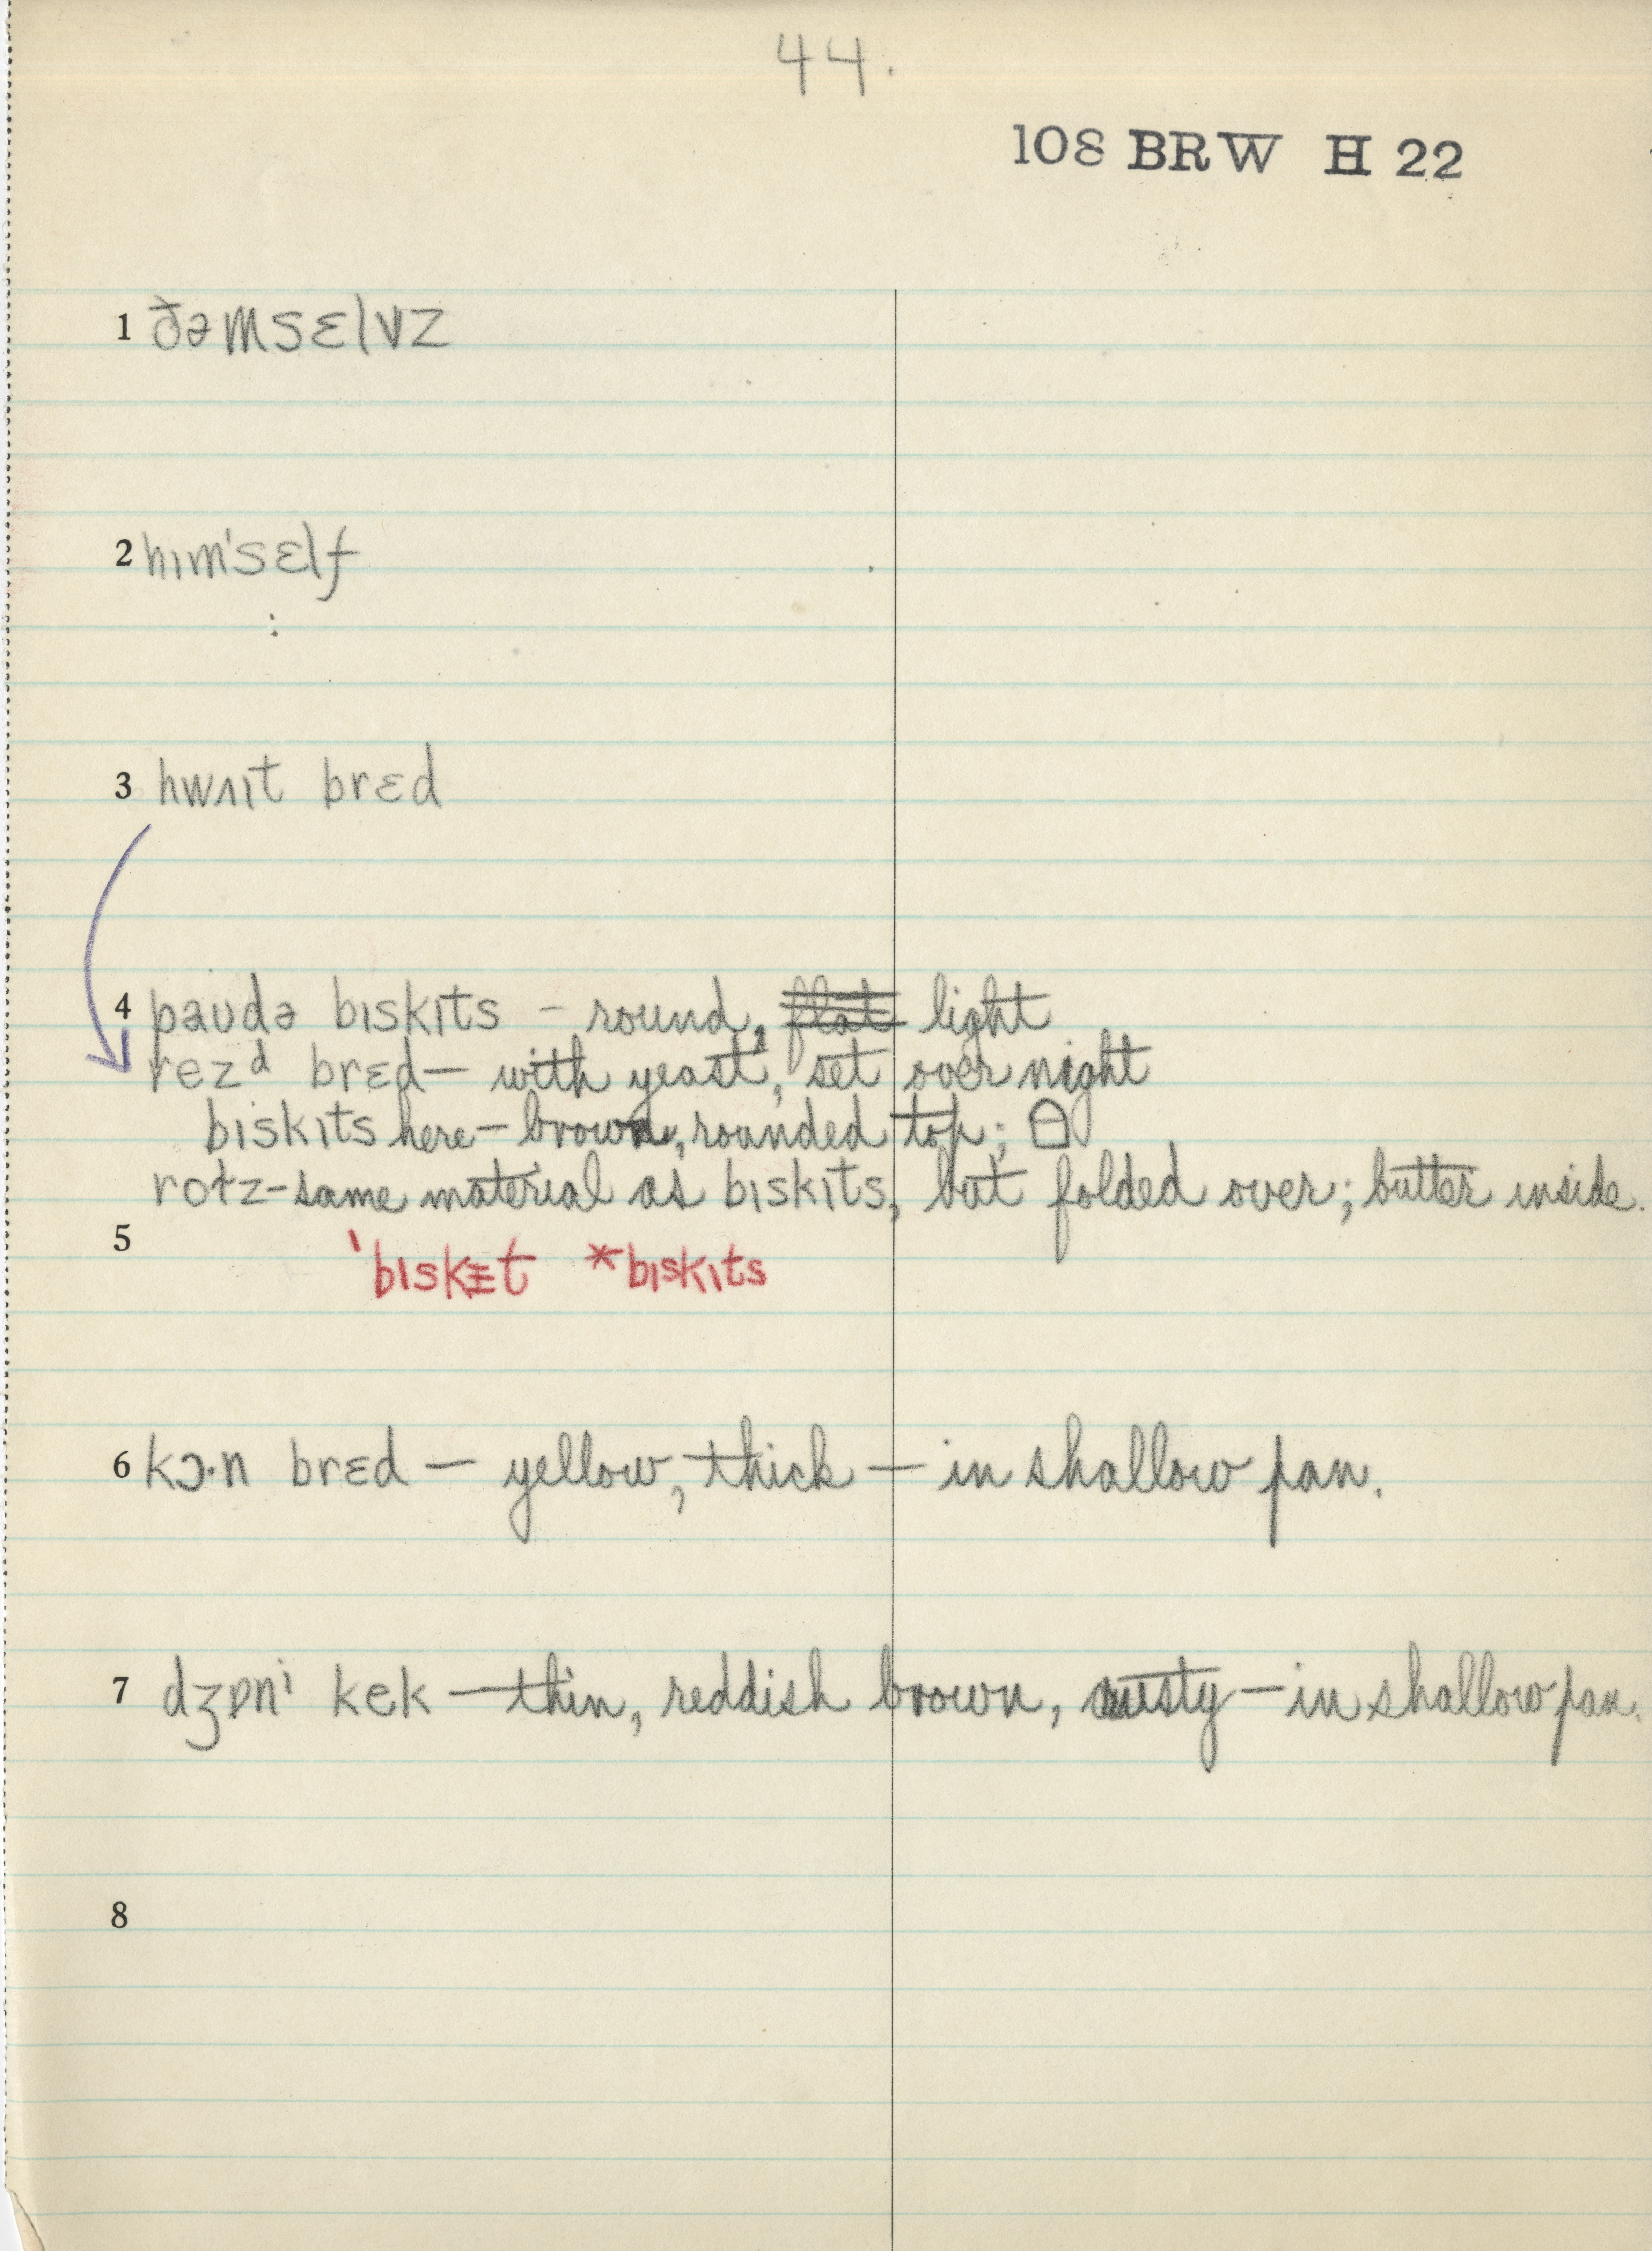 44.
108 BRW H 22
1 ðəmsɛlvz
2 hɪm'sɛlf
3 hwʌɪt brɛd
4 paʊdə bɪskɪts – round, flat light
rezᵈ brɛd – with yeast, set over night
bɪskɪts here – brown, rounded top;
roɫz – same material as bɪskɪts, but folded over; butter inside.
5
'bɪskɛt *bɪskɪts
6 kɔ·n brɛd – yellow, thick – in shallow pan.
7 dʒɒnⁱ kek – thin, reddish brown, crusty – in shallow pan.
8